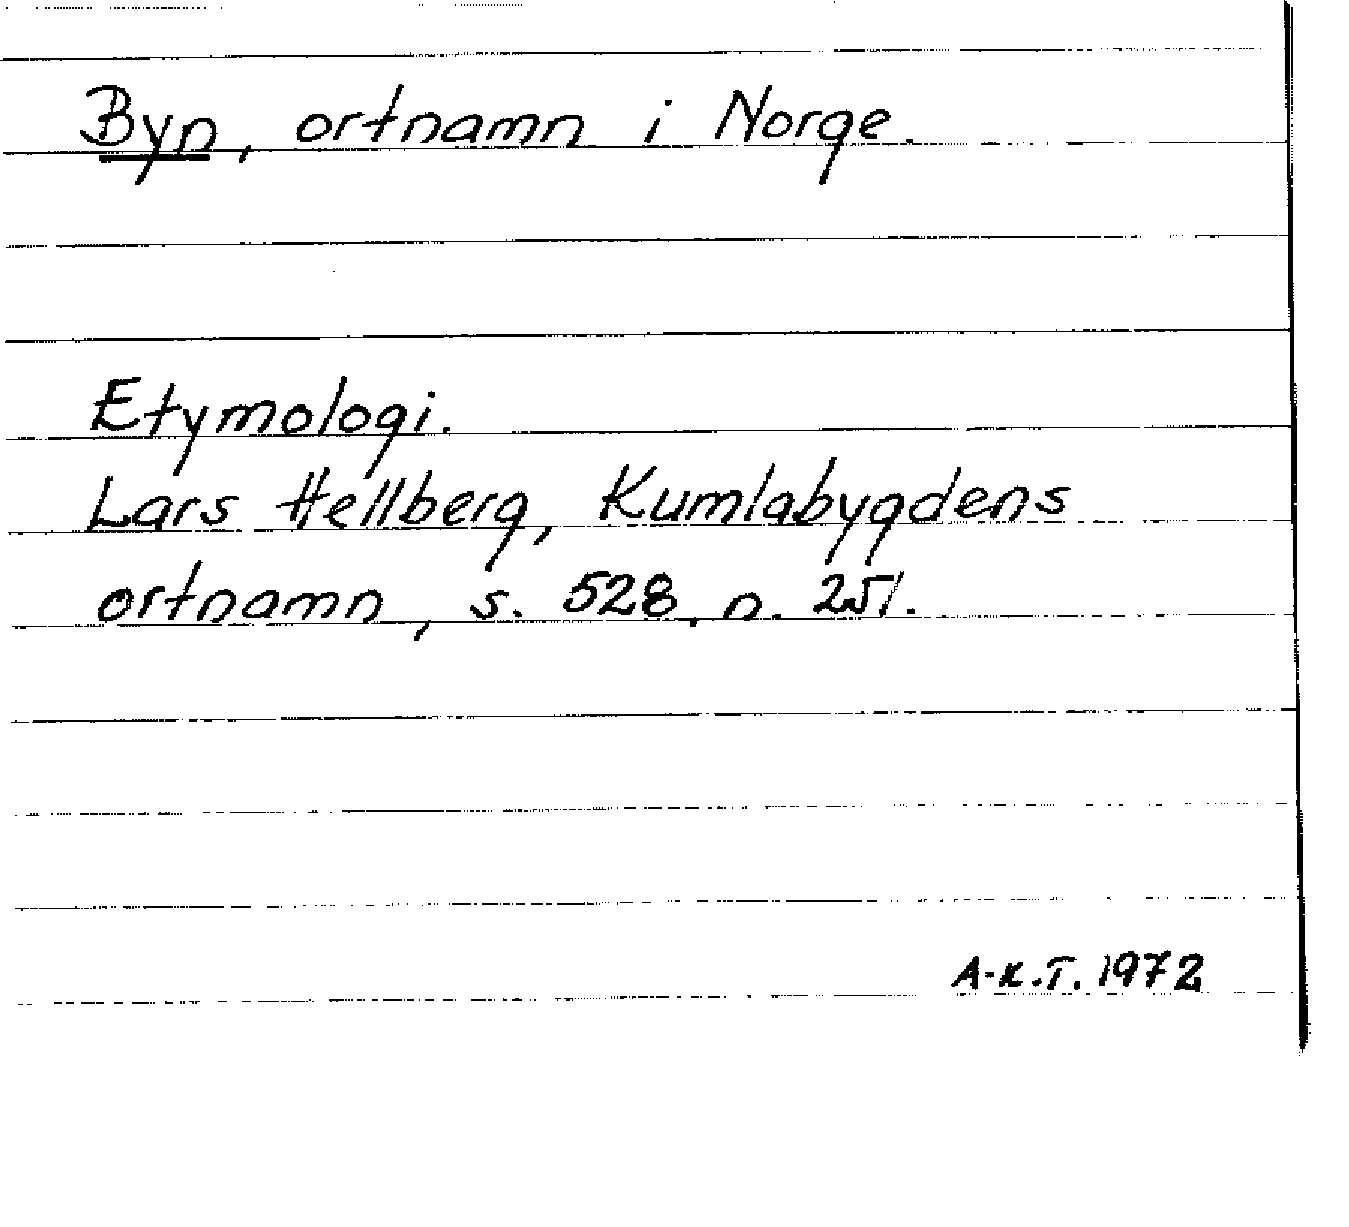 Byn, ortnamn i Norge.
Etymologi.
Lars Hellberg, Kumlabygdens
ortnamn, s. 528, n. 251.
A-K.T. 1972